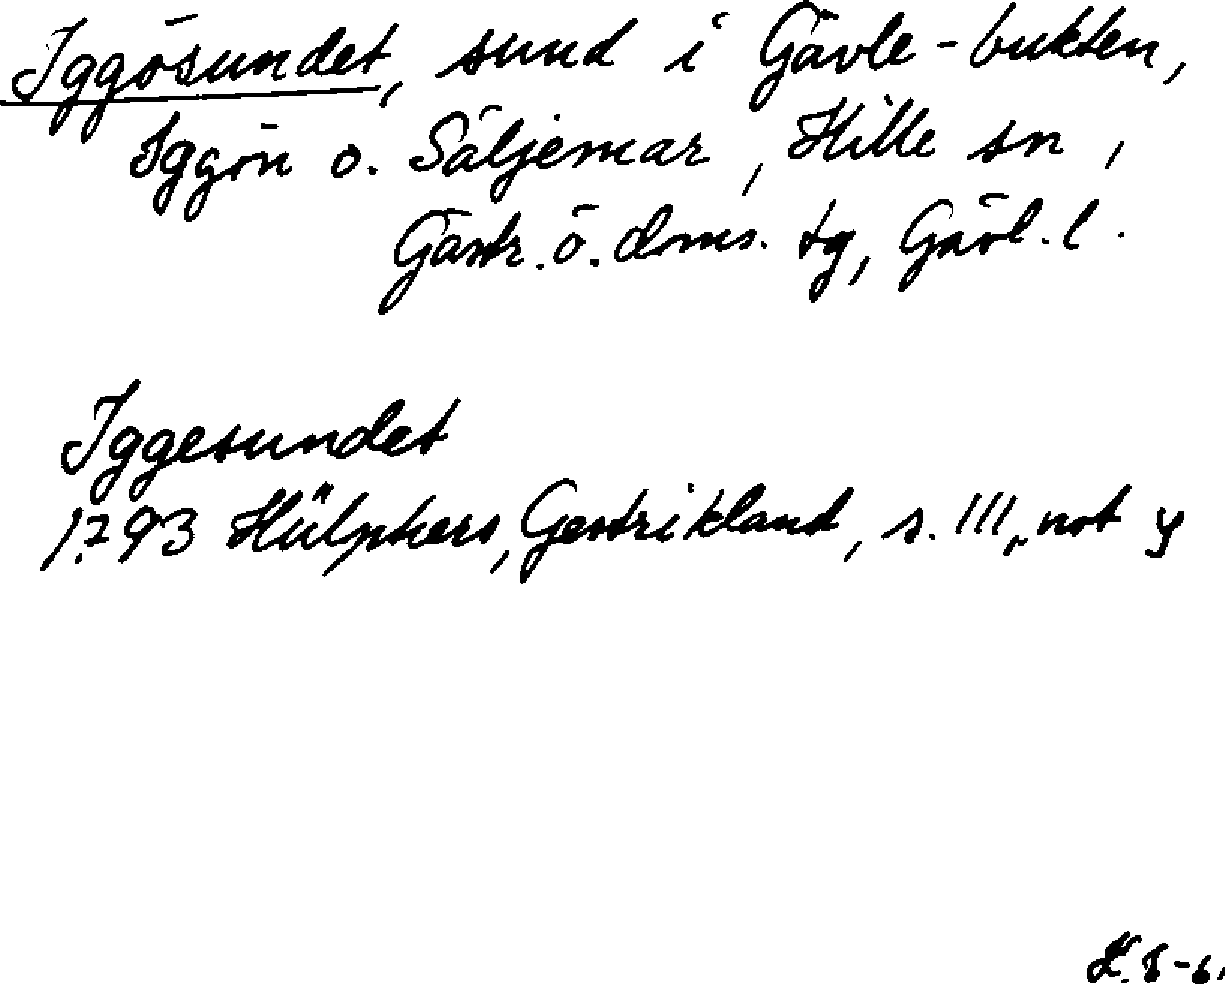 Iggösundet, sund i Gävle-bukten,
Iggön o. Säljemar, Hille sn,
Gästr. ö. doms. tg, Gävl. l.
Iggesundet
1793 Hülphers, Gestrikland, s. 111, not y